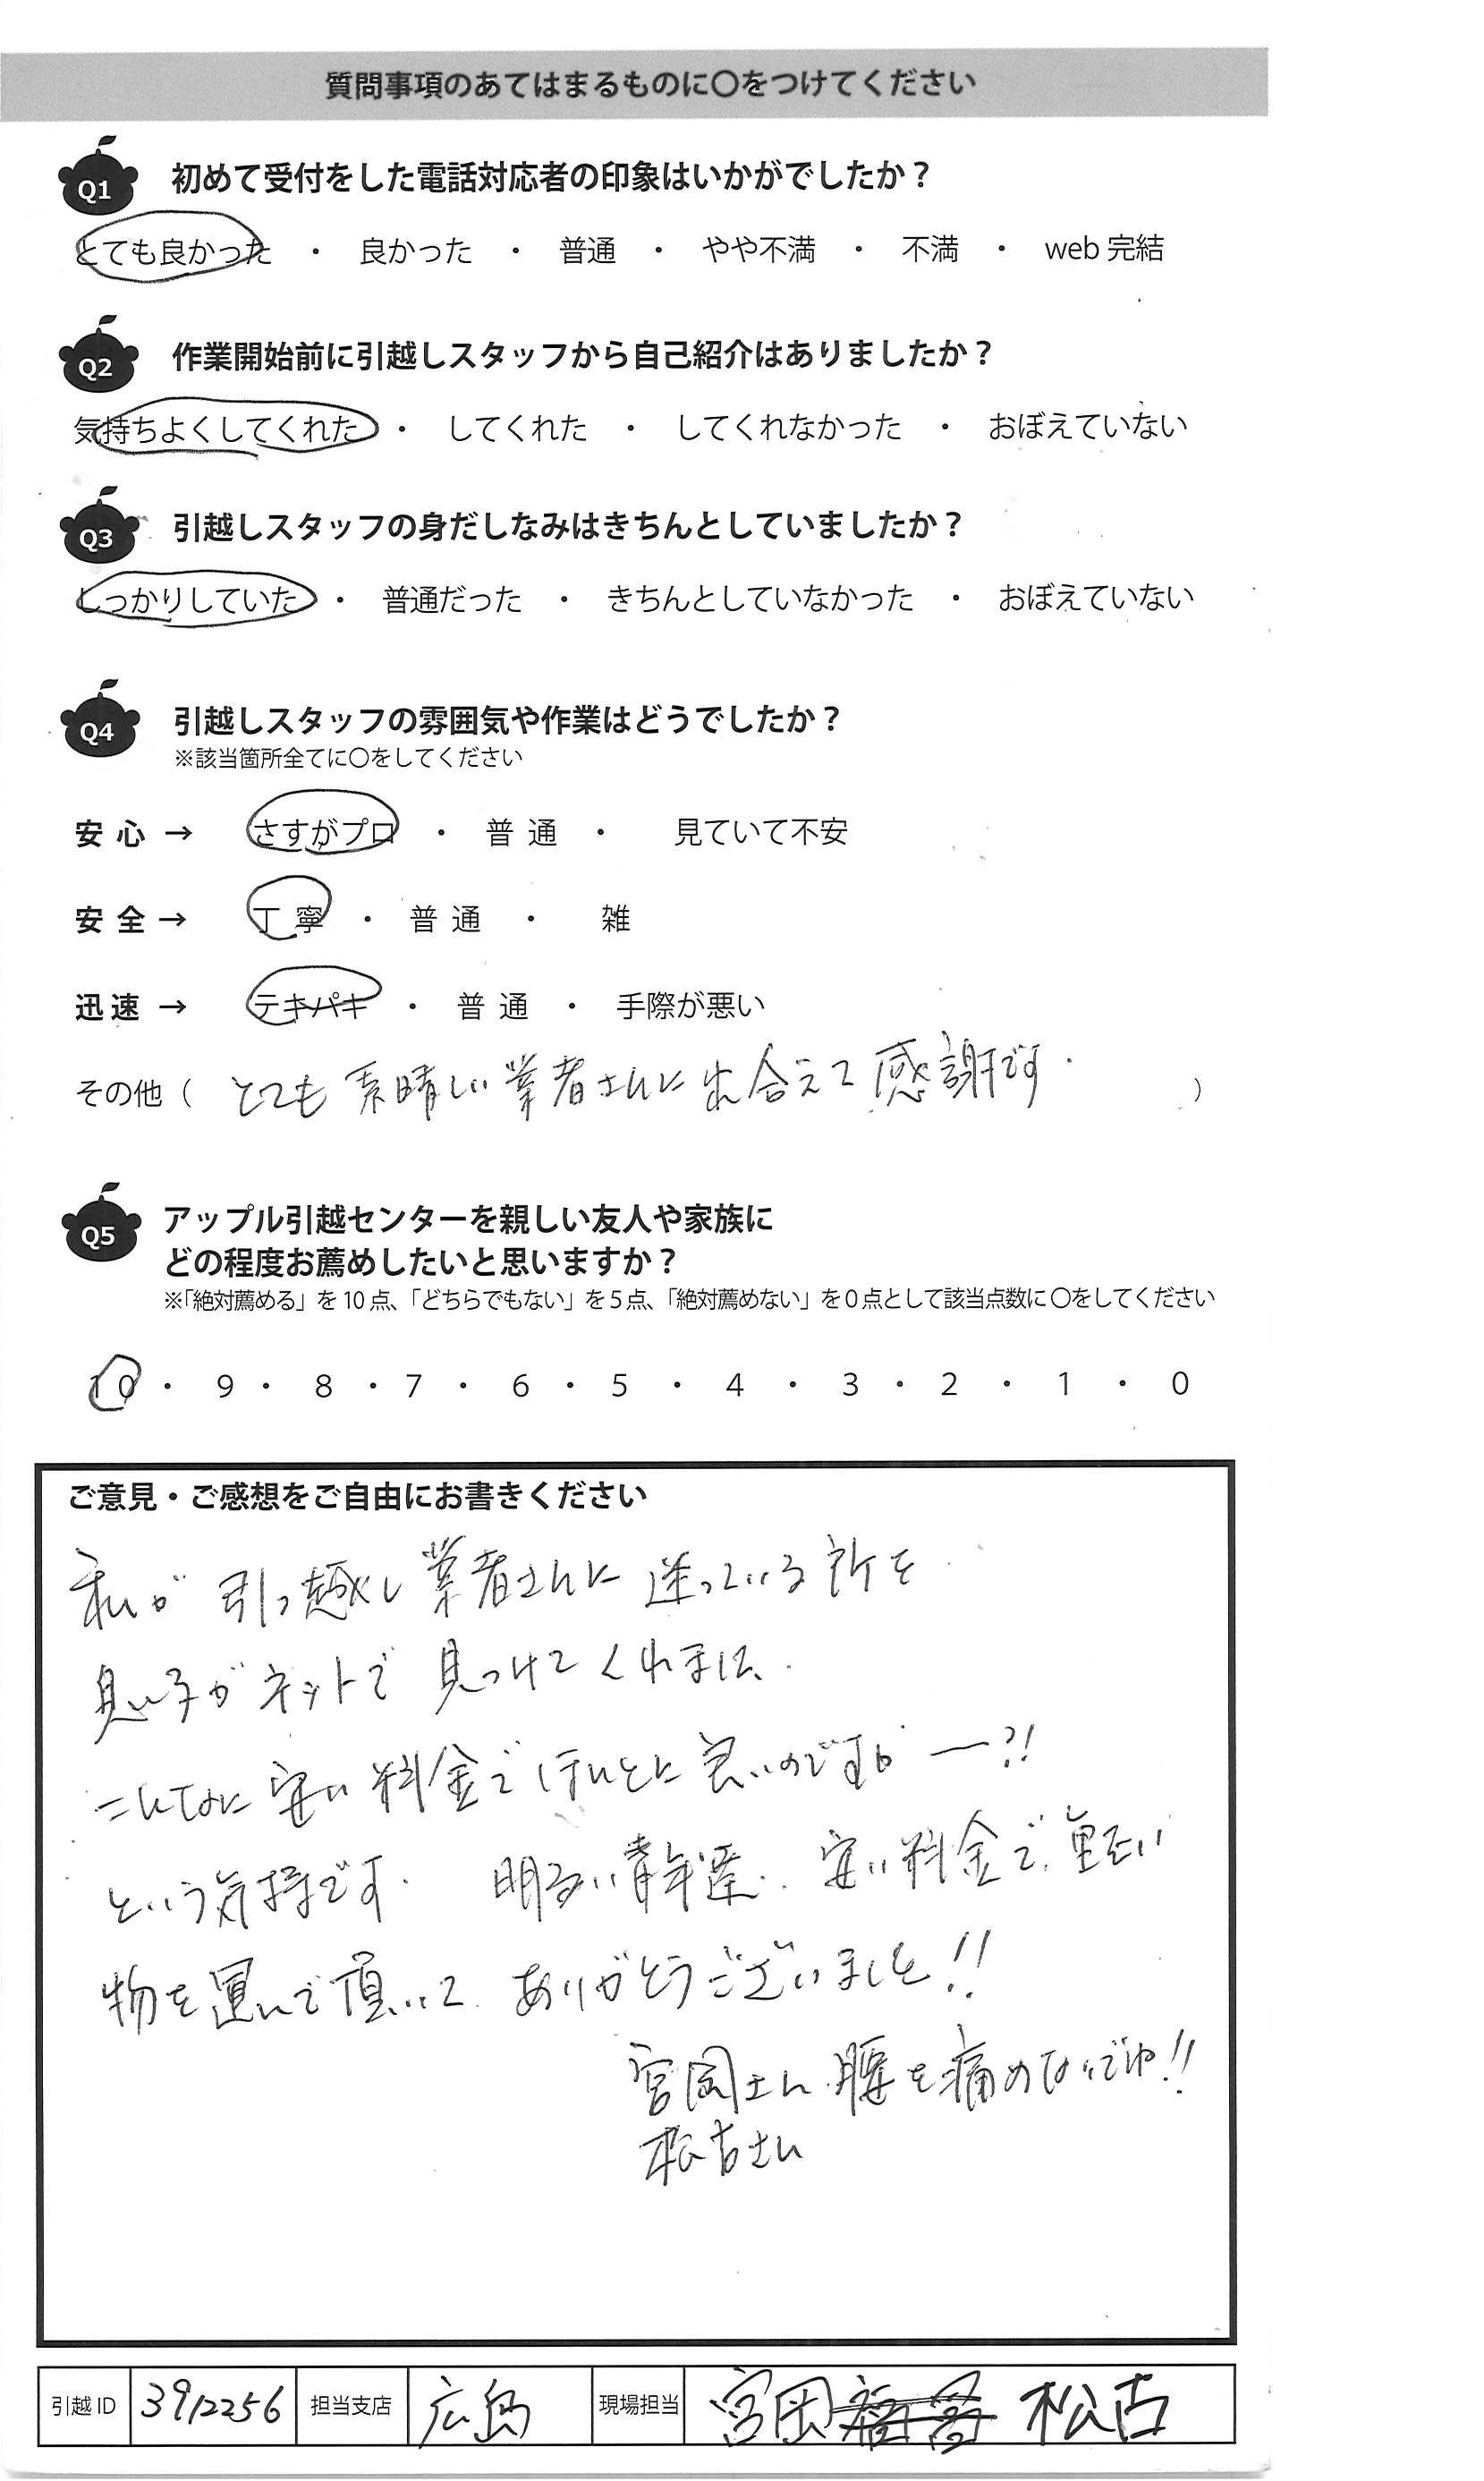 質問事項のあてはまるものに〇をつけてください
Q1 初めて受付をした電話対応者の印象はいかがでしたか？
とても良かった ・ 良かった ・ 普通 ・ やや不満 ・ 不満 ・ web 完結
Q2 作業開始前に引越しスタッフから自己紹介はありましたか？
気持ちよくしてくれた ・ してくれた ・ してくれなかった ・ おぼえていない
Q3 引越しスタッフの身だしなみはきちんとしていましたか？
しっかりしていた ・ 普通だった ・ きちんとしていなかった ・ おぼえていない
Q4 引越しスタッフの雰囲気や作業はどうでしたか？
※該当箇所全てに〇をしてください
安心 → さすがプロ ・ 普通 ・ 見ていて不安
安全 → 丁寧 ・ 普通 ・ 雑
迅速 → テキパキ ・ 普通 ・ 手際が悪い
その他（ とても素晴しい業者さんに出合えて感謝です. ）
Q5 アップル引越センターを親しい友人や家族に
どの程度お薦めしたいと思いますか？
※「絶対薦める」を10点、「どちらでもない」を5点、「絶対薦めない」を0点として該当点数に〇をしてください
10 ・ 9 ・ 8 ・ 7 ・ 6 ・ 5 ・ 4 ・ 3 ・ 2 ・ 1 ・ 0
ご意見・ご感想をご自由にお書きください
私が引っ越し業者さんに迷っている所を
息子がネットで見つけてくれました.
こんなに安い料金でほんとに良いのですかー?!
という気持です. 明るい青年達. 安い料金で、重たい
物を運んで頂いて ありがとうございました!!
宮岡さん 腰を痛めないでね!!
松古さん
引越ID 3912256 担当支店 広島 現場担当 宮岡 松古